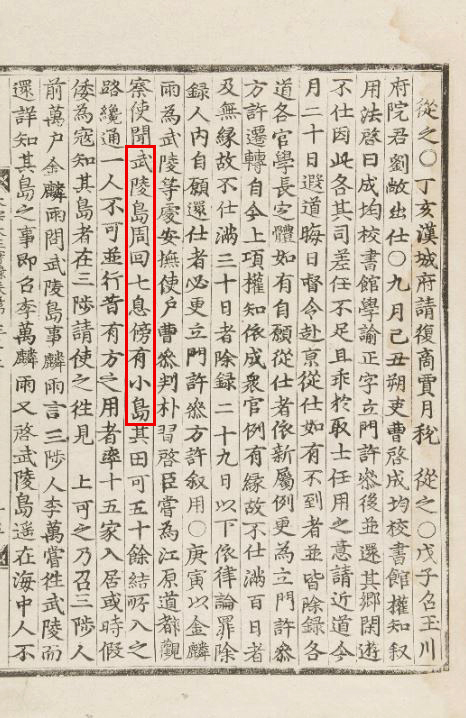 從之○丁亥漢城府請復商賈月稅 從之○戊子召玉川
府院君劉敞出仕○九月己丑朔吏曹啓成均校書館權知叙
用法啓曰成均校書館學諭正字立門許叅後並還其鄕閑遊
不仕因此各其司差任不足且乖於取士任用之意請近道今
月二十日遐道晦日督令赴京從仕如有不到者並皆除録各
道各官學長定體如有自願從仕者依新屬例更為立門許叅
方許遷轉自今上項權知依成衆官例有緣故不仕滿百日者
及無緣故不仕滿三十日者除録二十九日以下依律論罪除
録人內自願還仕者必更立門許叅方許叙用○庚寅以金麟
雨為武陵等處安撫使戶曹叅判朴習啓臣嘗為江原道都觀
察使聞武陵島周回七息傍有小島其田可五十餘結所入之
路纔通一人不可並行昔有方之用者率十五家入居或時假
倭為寇知其島者在三陟請使之徃見 上可之乃召三陟人
前萬户金麟雨問武陵島事麟雨言三陟人李萬嘗徃武陵而
還詳知其島之事即召李萬麟雨又啓武陵島遥在海中人不